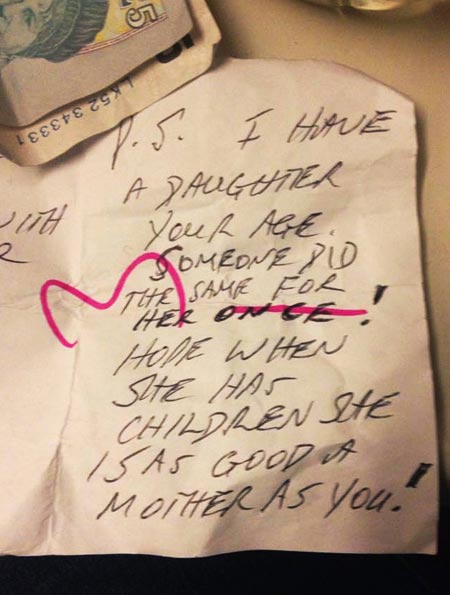 £5
5
LK52 343331
P.S. I HAVE
A DAUGHTER
YOUR AGE.
SOMEONE DID
THE SAME FOR
HER ONCE!
HOPE WHEN
SHE HAS
CHILDREN SHE
IS AS GOOD A
MOTHER AS YOU!